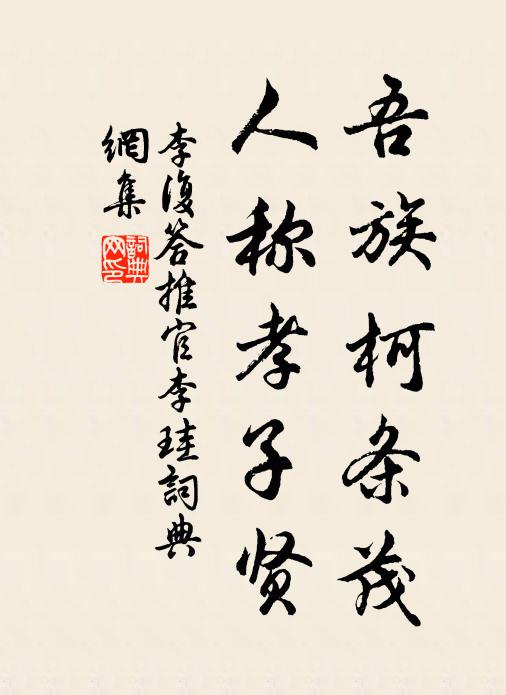 吾族柯条茂
人称孝子贤
李復答推官李珪詞典
網集
詞典
网印